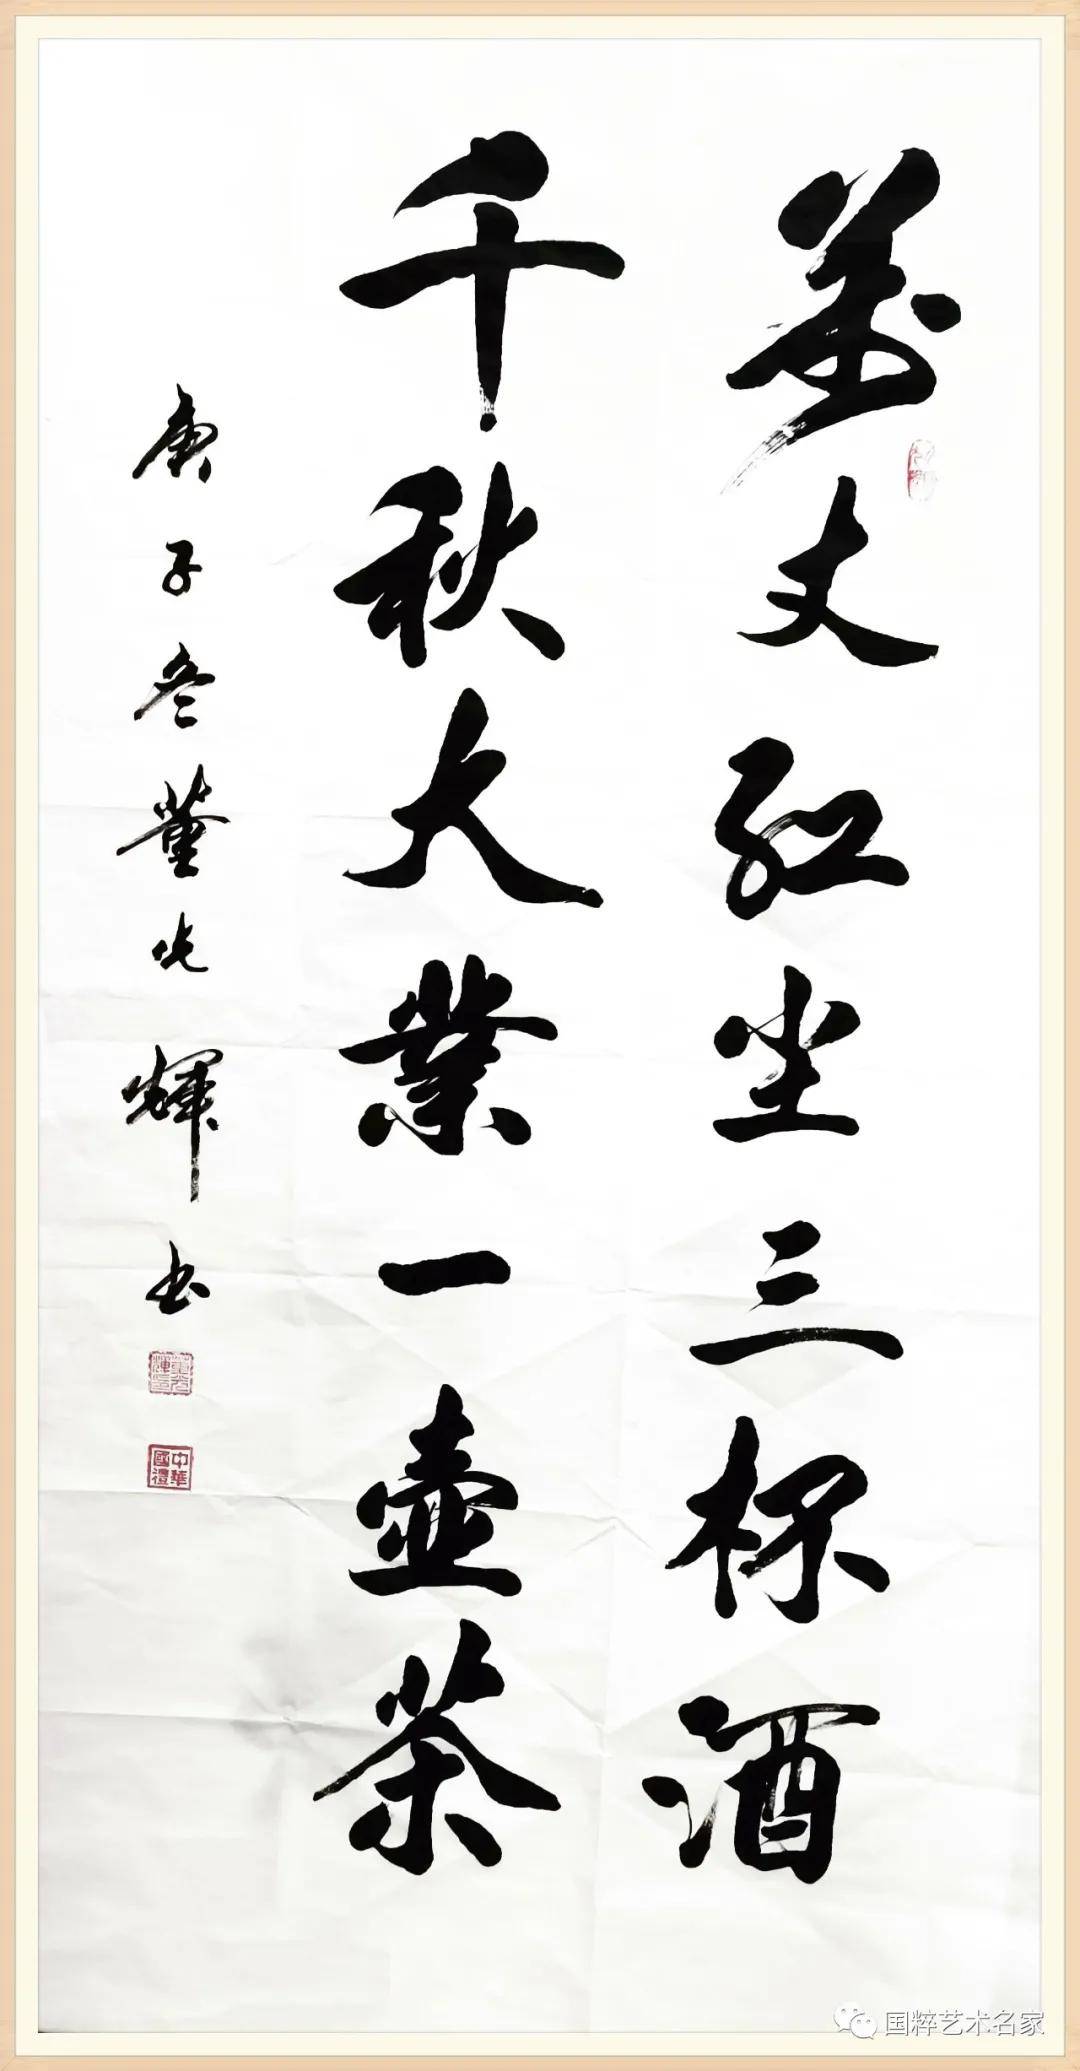 萬丈红尘三杯酒
千秋大業一壶茶
庚子冬董光輝书
董光輝印
中華國禮
国粹艺术名家